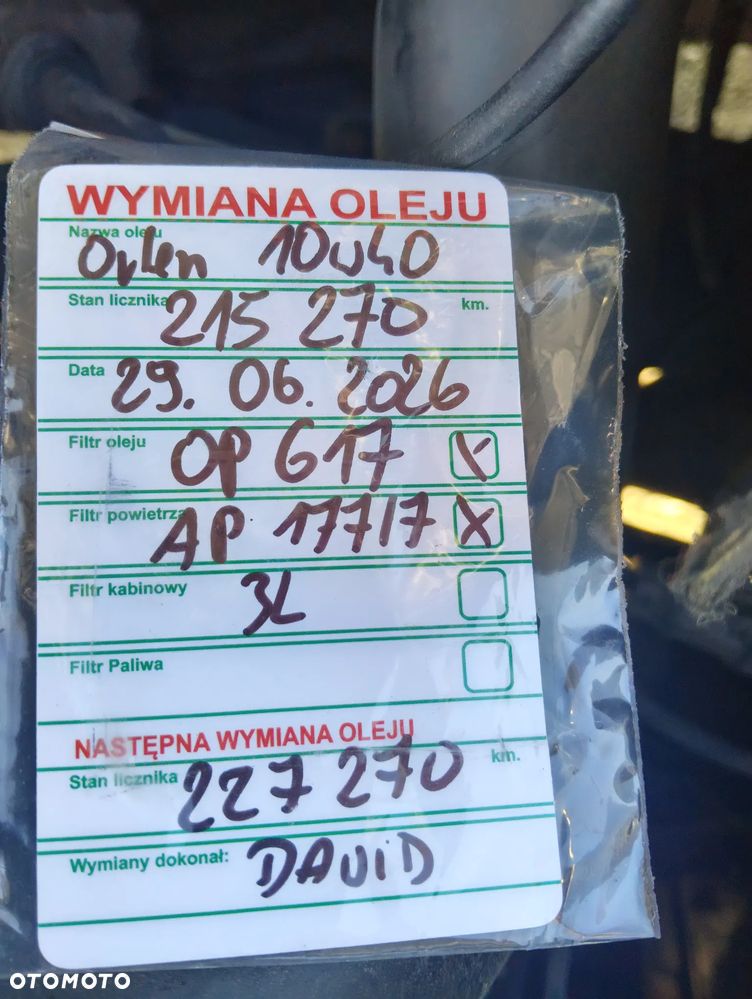 WYMIANA OLEJU
Nazwa oleju Orlen 10W40
Stan licznika 215 270 km.
Data 29. 06. 2026
Filtr oleju OP 617 X
Filtr powietrza AP 177/7 X
Filtr kabinowy 3L
Filtr Paliwa
NASTĘPNA WYMIANA OLEJU
Stan licznika 227 270 km.
Wymiany dokonał: DAVID
OTOMOTO